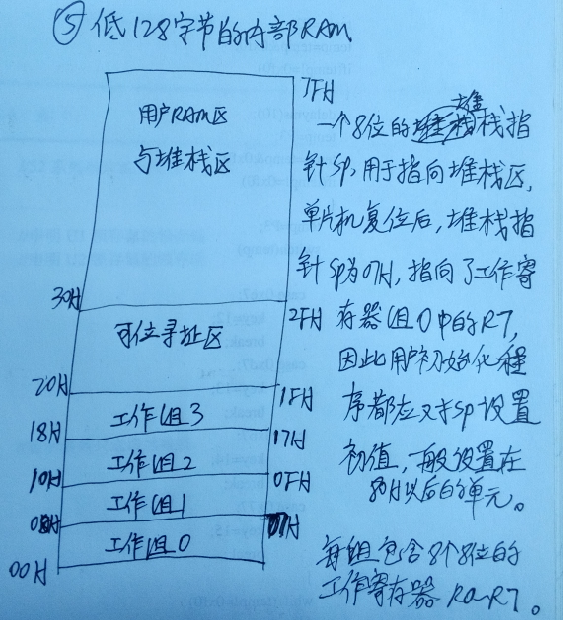 ⑤ 低128字节的内部RAM
7FH
用户RAM区
与堆栈区
30H
2FH
可位寻址区
20H
1FH
工作组3
18H
17H
工作组2
10H
0FH
工作组1
08H
07H
工作组0
00H
一个8位的堆栈指
针SP,用于指向堆栈区,
单片机复位后,堆栈指
针SP为07H,指向了工作寄
存器组0中的R7,
因此用户初始化程
序都应对SP设置
初值,一般设置在
30H以后的单元。
每组包含8个8位的
工作寄存器 R0~R7。